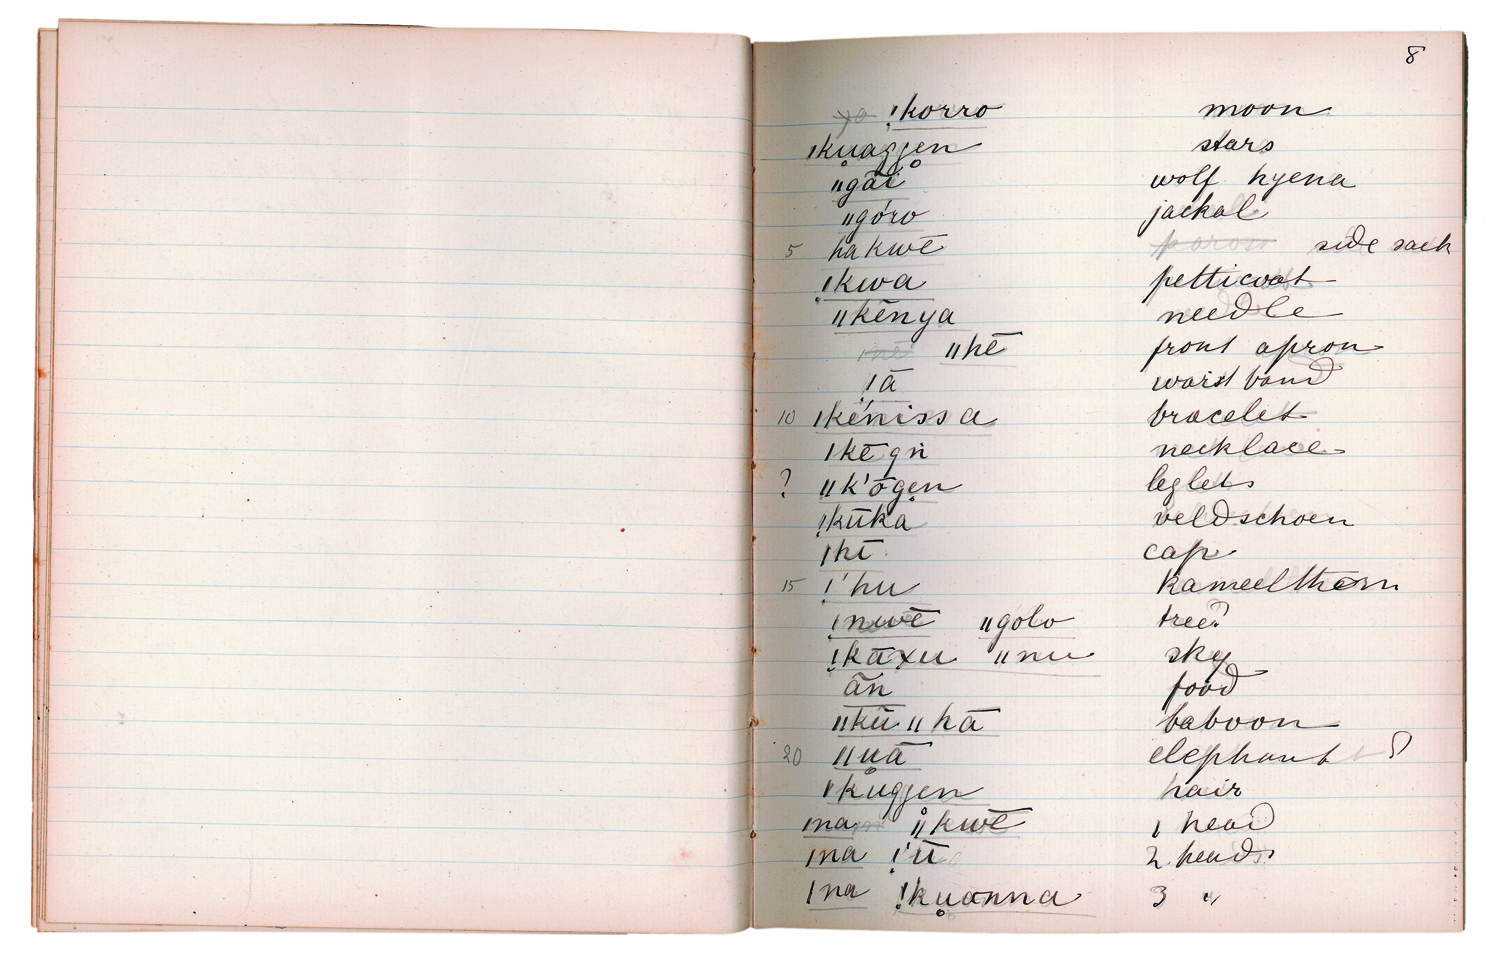 8
!korro moon
|kụaggen stars
ǁgãi wolf hyena
ǁgóro jackal
5 hakwē side sack
!kwa petticoat
ǁkēnya needle
ǁhē front apron
!ā waist band
10 |kénissa bracelet
|kē gn necklace
? ǁk'ōgen leglets
!kūka veldschoen
|hī cap
15 !'hu kameelthorn
!nwē ǁgolo tree?
!kāxu ǁnu sky
ān food
ǁkū ǁhā baboon
20 ǁuā elephant ?
|kuggen hair
|na ǁkwē 1 head
|na !'ū 2 heads
|na !kụanna 3 "